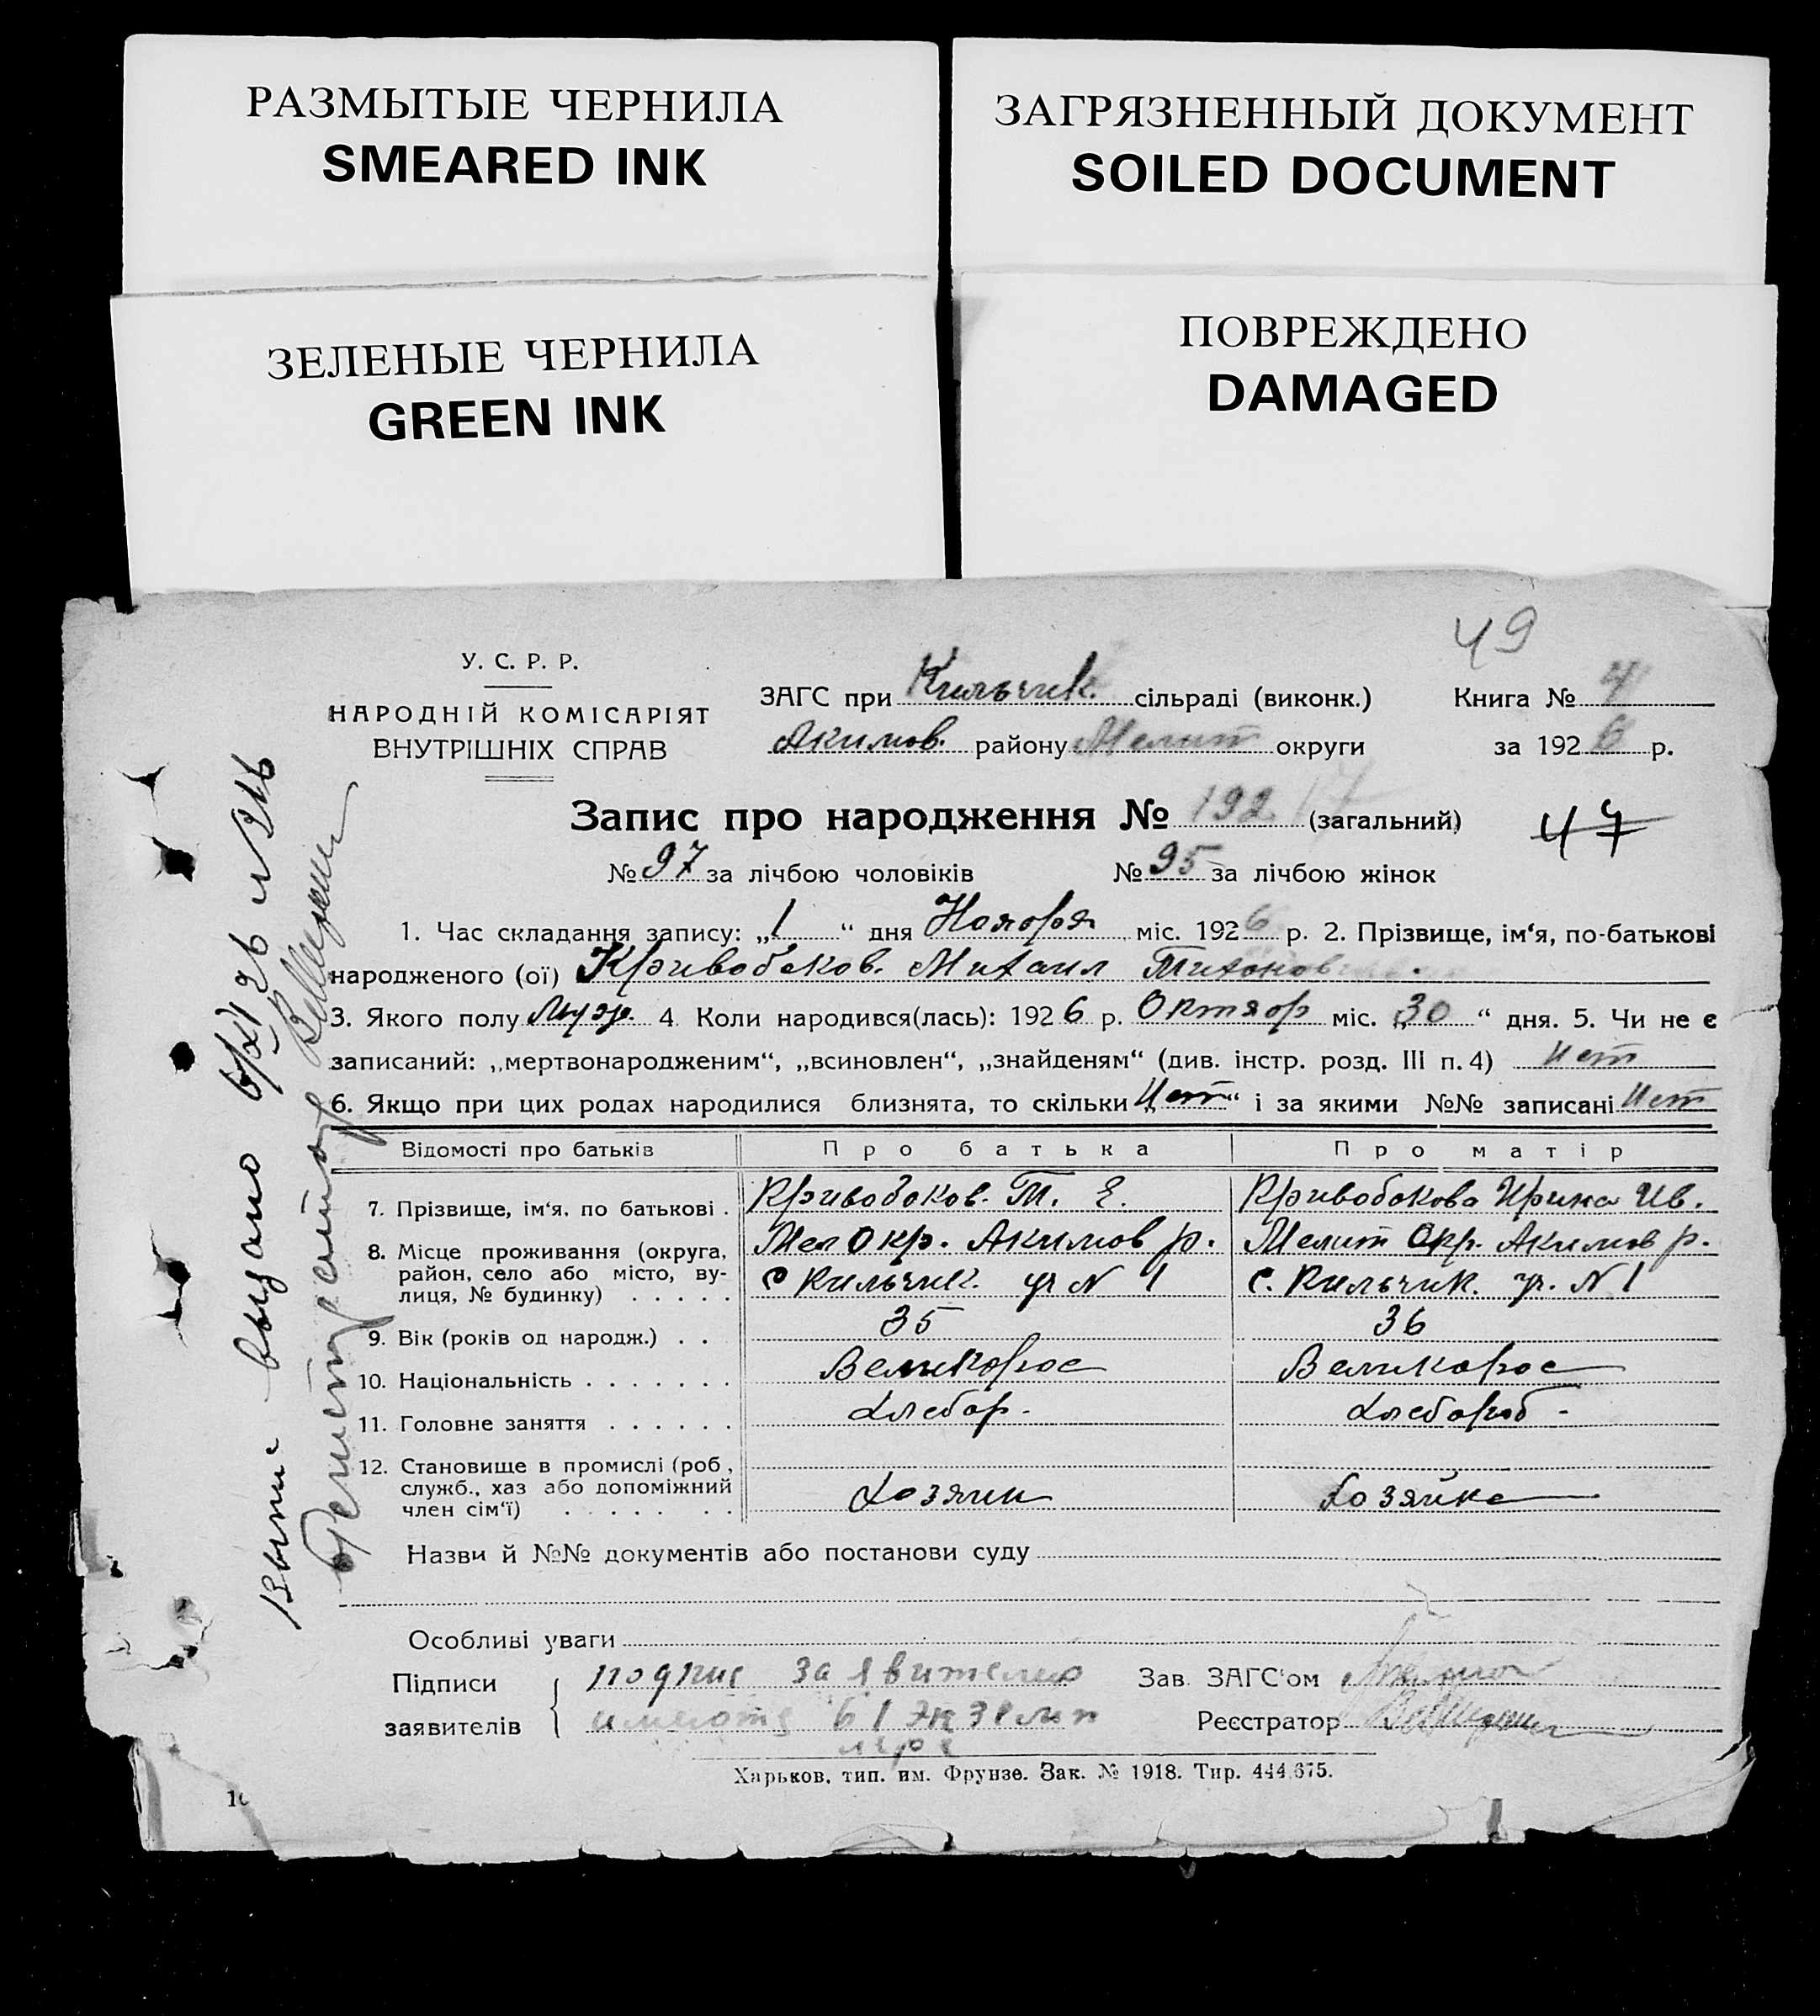 РАЗМЫТЫЕ ЧЕРНИЛА
SMEARED INK
ЗАГРЯЗНЕННЫЙ ДОКУМЕНТ
SOILED DOCUMENT
ЗЕЛЕНЫЕ ЧЕРНИЛА
GREEN INK
ПОВРЕЖДЕНО
DAMAGED
49
У. С. Р. Р.
НАРОДНІЙ КОМІСАРІЯТ
ВНУТРІШНІХ СПРАВ
ЗАГС при Кильчик. сільраді (виконк.) Книга № 4
Акимов. району Мелит округи за 1926 р.
Запис про народження № 192 (загальний)
47
№ 97 за лічбою чоловіків № 95 за лічбою жінок
1. Час складання запису: „1“ дня Ноября міс. 1926 р. 2. Прізвище, ім‘я, по-батькові
народженого (ої) Кривобоков. Михаил Тихонов
3. Якого полу Муж. 4 Коли народився(лась): 1926 р. Октяор міс. „30“ дня. 5. Чи не є
записаний: „мертвонародженим“, „всиновлен“, „знайденям“ (див. інстр. розд. III п. 4) Нет
6. Якщо при цих родах народилися близнята, то скільки „Нет“ і за якими №№ записані Нет
Відомості про батьків Про батька Про матір
7. Прізвище, ім‘я, по батькові . Кривобоков. Т. Е. Кривобокова Ирина Ив.
8. Місце проживання (округа, Мел Окр. Акимов р. Мелит Окр. Акимов р.
район, село або місто, ву-
лиця, № будинку) . . . . . с Кильчик. ул N 1 с. Кильчик. ул. N 1
9. Вік (років од народж.) . . 35 36
10. Національність . . . . . . . Великорос Великорос
11. Головне заняття . . . . . . Хлебор. Хлебороб -
12. Становище в промислі (роб,
служб., хаз або допоміжний
член сім‘ї) . . . . . . . Хозяин Хозяйка
Назви й №№ документів або постанови суду
Особливі уваги
Підписи подпис заявителю Зав ЗАГС‘ом
заявителів имеютя в 1 экземп Реєстратор
ляре
Харьков, тип. им. Фрунзе. Зак. № 1918. Тир. 444.675.
выдано